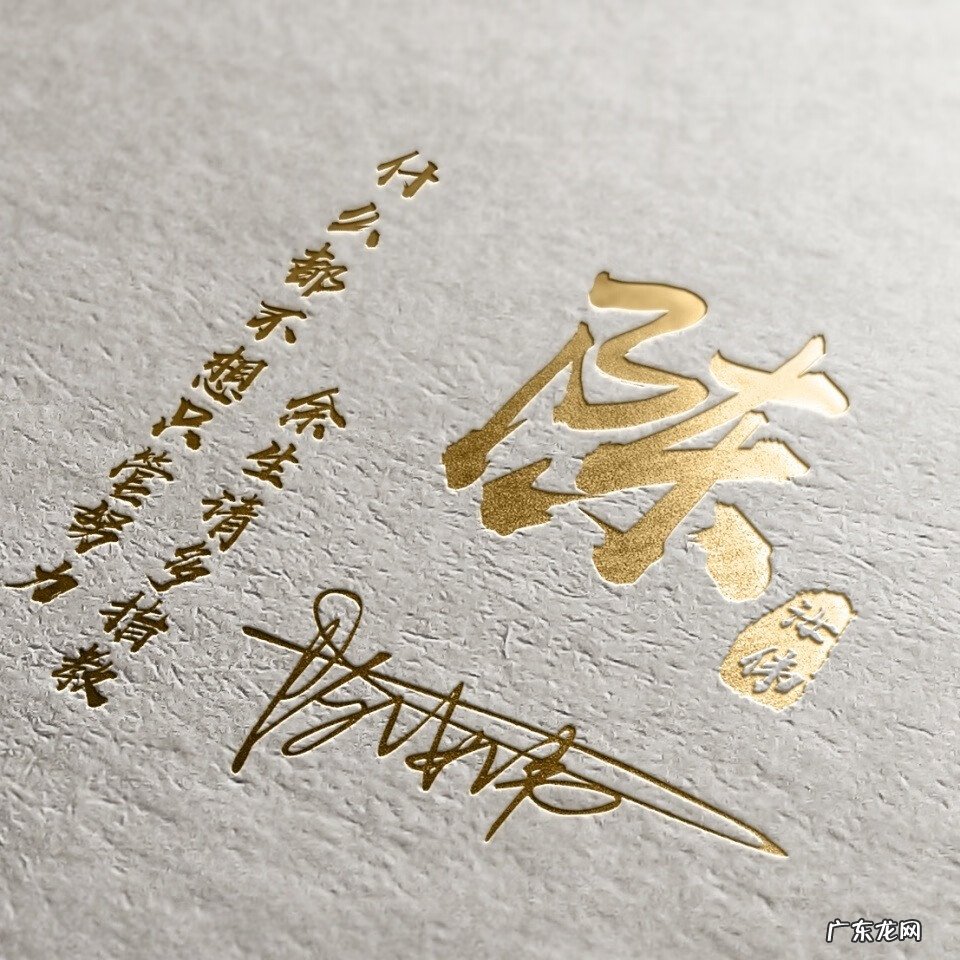 陈
什么都不想只管努力
余生请多指教
广东龙网